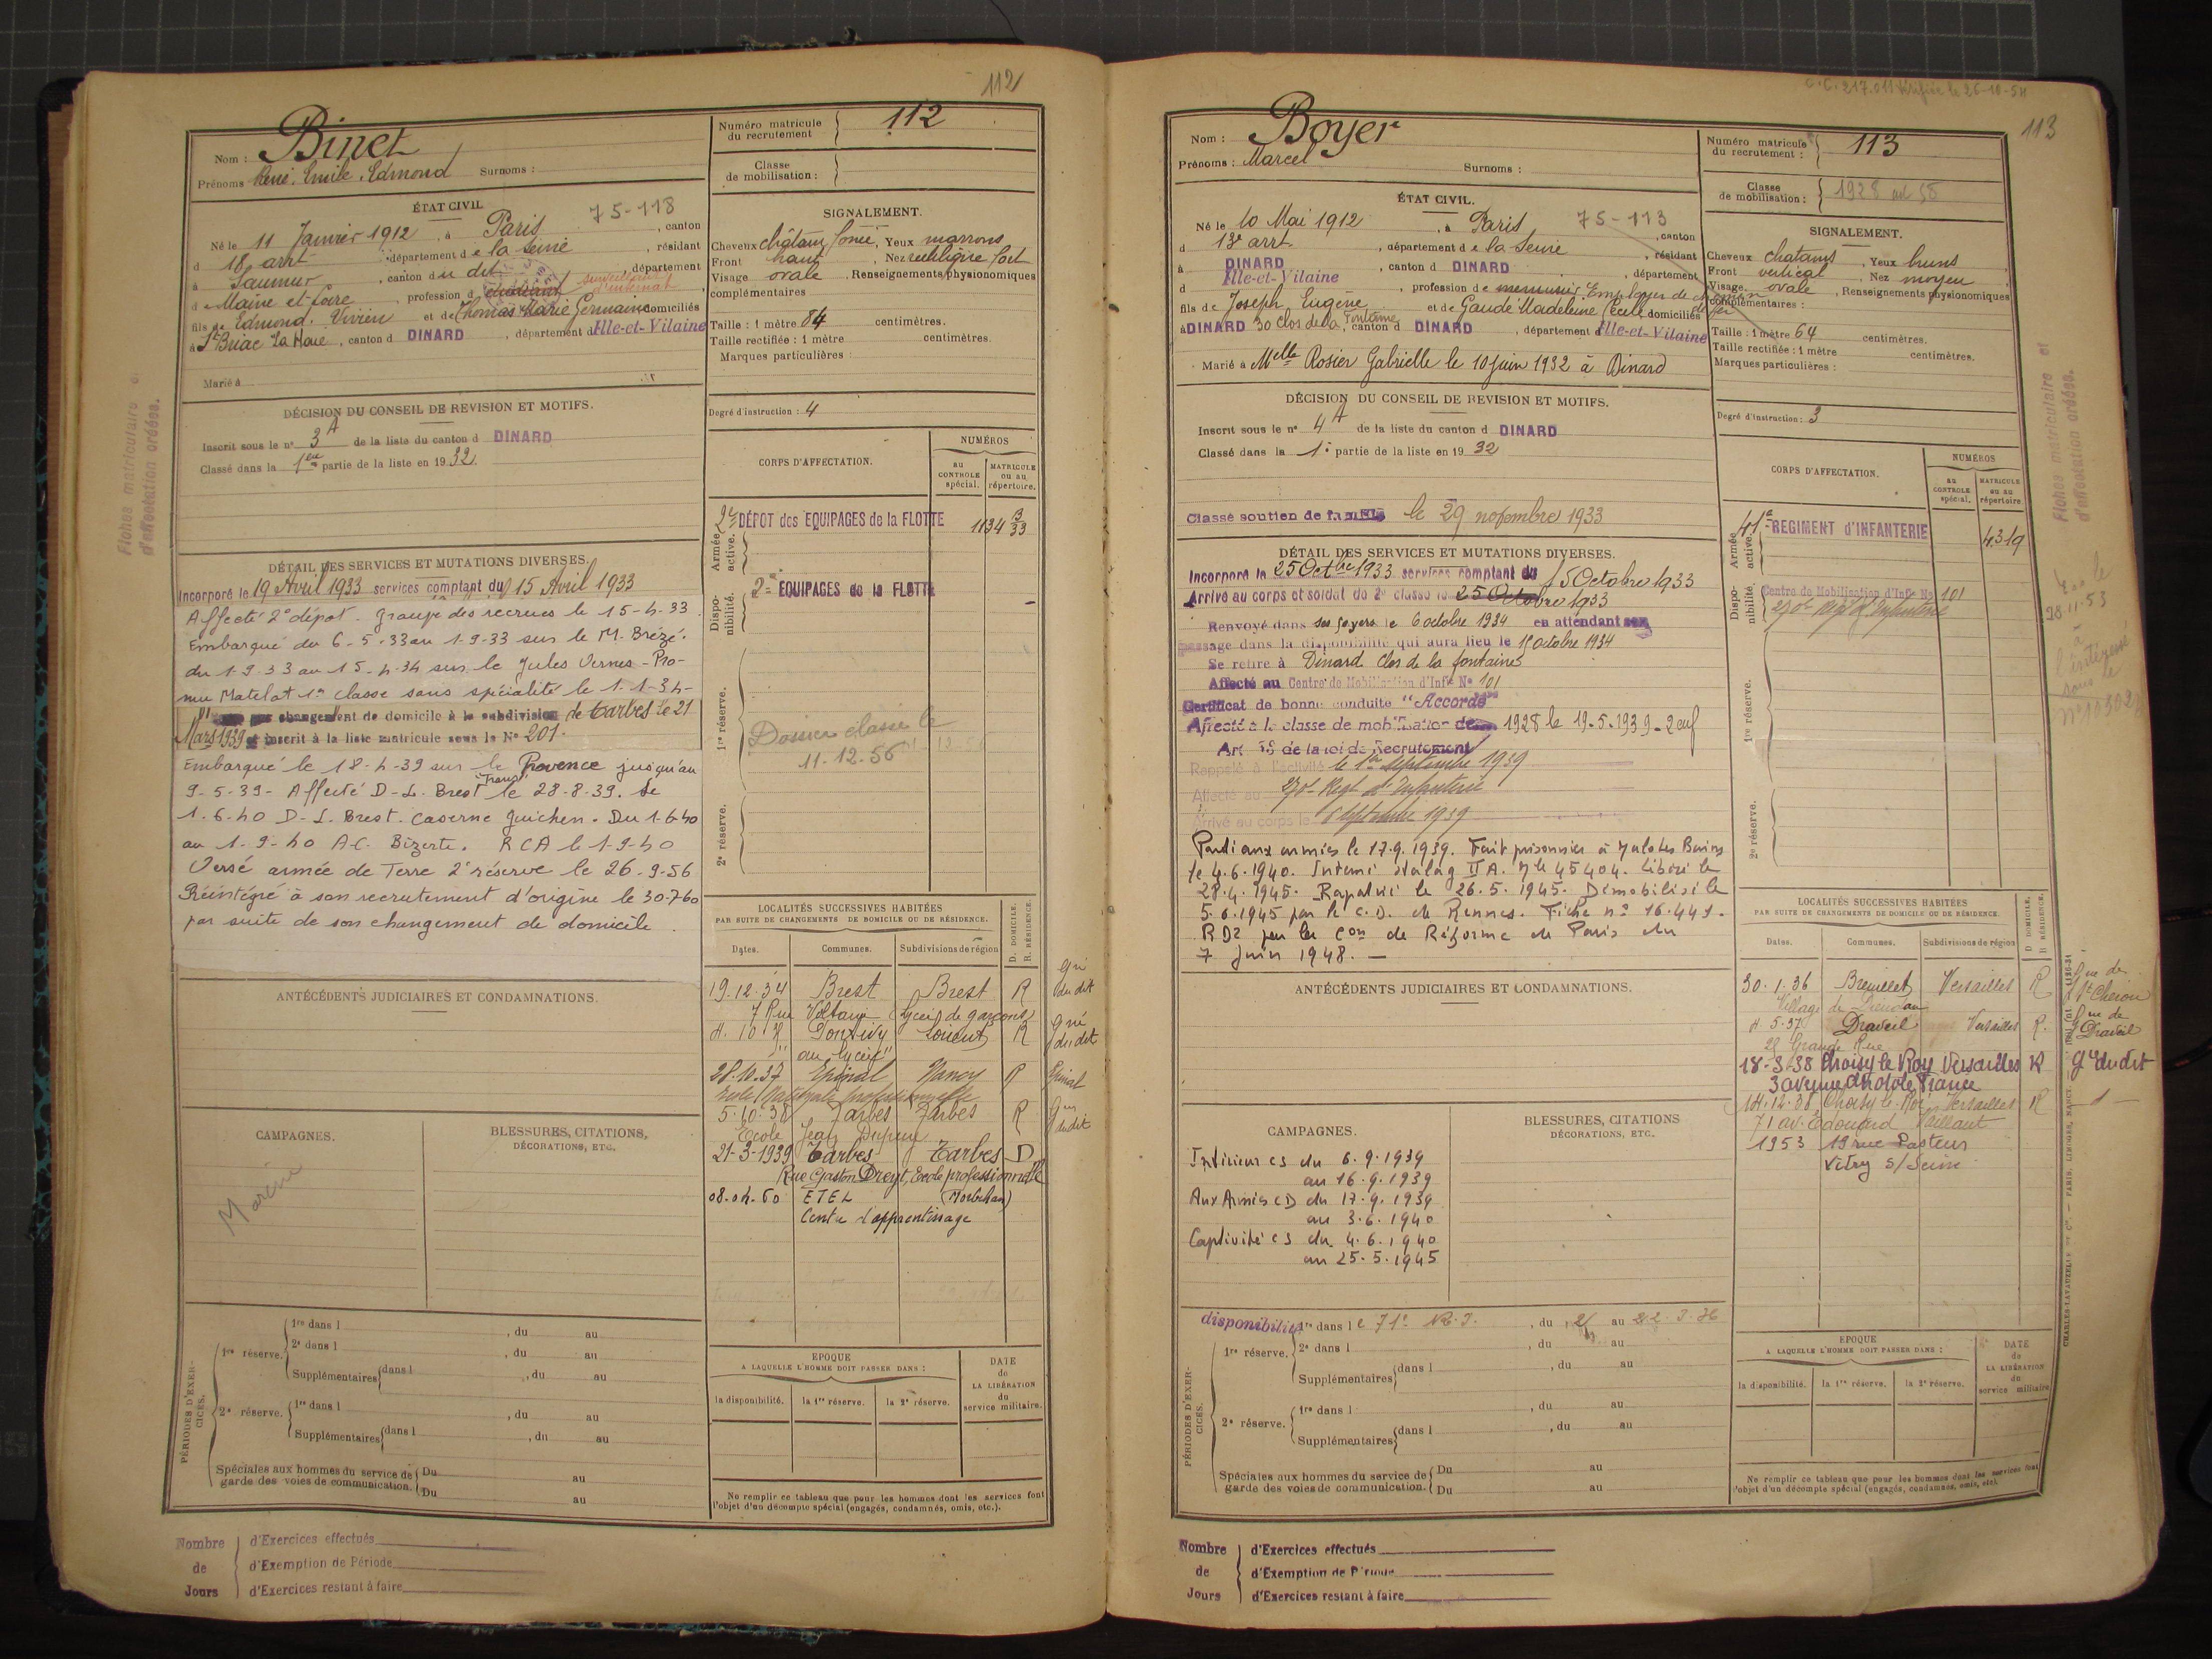 112
Nom : Binet
Prénoms René, Emile, Edmond Surnoms :
Numéro matricule du recrutement 112
Classe de mobilisation :
ÉTAT CIVIL
75-118
Né le 11 Janvier 1912, à Paris, canton
d 18 arrt, département de la Seine, résidant
à Saumur, canton du dit, département
de Maine et Loire, profession d étudiant surveillant d'internat
fils de Edmond, Vivien et de Thomas Marie Germaine domiciliés
à St Briac La Houe, canton d DINARD, département d'Ille-et-Vilaine
Marié à
SIGNALEMENT.
Cheveux châtain foncé, Yeux marrons
Front haut, Nez rectiligne fort
Visage ovale, Renseignements physionomiques
complémentaires
Taille : 1 mètre 84 centimètres.
Taille rectifiée : 1 mètre centimètres.
Marques particulières :
Degré d'instruction : 4
DÉCISION DU CONSEIL DE REVISION ET MOTIFS.
Inscrit sous le n° 3 A de la liste du canton d DINARD
Classé dans la 1ère partie de la liste en 1932.
CORPS D'AFFECTATION.
NUMÉROS
AU CONTROLE spécial.
MATRICULE ou au répertoire.
Armée active.
2e DÉPOT des EQUIPAGES de la FLOTTE 1134 B 33
Disponibilité.
2e EQUIPAGES de la FLOTTE
1re réserve.
Dossier classé le
11.12.56
2e réserve.
Fiches matriculaire et
d'affectation créées.
DÉTAIL DES SERVICES ET MUTATIONS DIVERSES.
Incorporé le 19 Avril 1933 services comptant du 15 Avril 1933
Affecté 2e dépôt. Groupe des recrues le 15-4-33
Embarqué du 6-5-33 au 1-9-33 sur le M. Brézé.
du 1-9-33 au 15-4-34 sur le Jules Vernes - Pro-
mu Matelot 1re classe sans spécialité le 1-1-34-
changement de domicile à la subdivision de Tarbes le 21
Mars 1939 et inscrit à la liste matricule sous le N° 201.
Embarqué le 18-4-39 sur le Provence jusqu'au
9-5-39- Affecté D-L. Brest le 28-8-39. Le
1-6-40 D-L. Brest. Caserne Guichen. Du 1-6-40
au 1-9-40 A-C. Bizerte. RCA le 1-9-40
Versé armée de Terre 2e réserve le 26-9-56
Réintégré à son recrutement d'origine le 30-7-60
par suite de son changement de domicile.
ANTÉCÉDENTS JUDICIAIRES ET CONDAMNATIONS.
CAMPAGNES.
Marine
BLESSURES, CITATIONS,
DÉCORATIONS, ETC.
LOCALITÉS SUCCESSIVES HABITÉES
PAR SUITE DE CHANGEMENTS DE DOMICILE OU DE RÉSIDENCE.
Dates. Communes. Subdivisions de région
D. DOMICILE. R. RÉSIDENCE.
19.12.34 Brest Brest R du dit
7 Rue Voltaire Lycée de garçons
Pontivy Lorient R du dit
au lycée
28.10.37 Epinal Nancy R Epinal
Ecole Nationale professionnelle
5.10.38 Tarbes Tarbes R du dit
Ecole Jean Dupuy
21-3-1939 Tarbes Tarbes D
Rue Gaston Dreyt, Ecole professionnelle
08.04.60 ETEL (Morbihan)
Centre d'apprentissage
PÉRIODES D'EXERCICES.
1re réserve. 1re dans l , du au
2e dans l , du au
Supplémentaires dans l , du au
2e réserve. 1re dans l , du au
Supplémentaires dans l , du au
Spéciales aux hommes du service de garde des voies de communication. Du au
Du au
EPOQUE
A LAQUELLE L'HOMME DOIT PASSER DANS :
la disponibilité. la 1re réserve. la 2e réserve.
DATE de LA LIBÉRATION du service militaire.
Ne remplir ce tableau que pour les hommes dont les services font
l'objet d'un décompte spécial (engagés, condamnés, omis, etc.).
Nombre de Jours
d'Exercices effectués
d'Exemption de Période
d'Exercices restant à faire
C.C. 217.011 Vérifiée le 26-10-54
113
Nom : Boyer
Prénoms : Marcel Surnoms :
Numéro matricule du recrutement : 113
Classe de mobilisation : 1928 art 58
ÉTAT CIVIL.
75-113
Né le 10 Mai 1912, à Paris, canton
d 13e arrt, département de la Seine, résidant
à DINARD, canton d DINARD, département
d Ille-et-Vilaine, profession de menuisier Employer de chemin de fer
fils de Joseph, Eugène et de Gaude Madeleine Cécile domiciliés
à DINARD 30 Clos de la Fontaine, canton d DINARD, département d'Ille-et-Vilaine
Marié à Melle Rosier Gabrielle le 10 juin 1932 à Dinard
SIGNALEMENT.
Cheveux chatains, Yeux bruns
Front vertical, Nez moyen
Visage ovale, Renseignements physionomiques
complémentaires :
Taille : 1 mètre 64 centimètres.
Taille rectifiée : 1 mètre centimètres.
Marques particulières :
Degré d'instruction : 3
DÉCISION DU CONSEIL DE REVISION ET MOTIFS.
Inscrit sous le n° 4 A de la liste du canton d DINARD
Classé dans la 1e partie de la liste en 1932
Classé soutien de famille le 29 novembre 1933
CORPS D'AFFECTATION.
NUMÉROS
AU CONTROLE spécial.
MATRICULE ou au répertoire.
Armée active.
41e REGIMENT d'INFANTERIE 4319
Disponibilité.
Centre de Mobilisation d'Infie No 101
270e Régt d'Infanterie
1re réserve.
2e réserve.
Fiches matriculaire et
d'affectation créées.
28.11.53
à
l'intéressé
sous le
DÉTAIL DES SERVICES ET MUTATIONS DIVERSES.
Incorporé le 25 Octbre 1933 services comptant du 15 Octobre 1933
Arrivé au corps et soldat de 2e classe le 25 Octobre 1933
Renvoyé dans ses foyers le 6 octobre 1934 en attendant son
passage dans la disponibilité qui aura lieu le 15 octobre 1934
Se retire à Dinard Clos de la fontaine
Affecté au Centre de Mobilisation d'Infie N° 101
Certificat de bonne conduite "Accordé"
Affecté à la classe de mobilisation de 1928 le 19-5-1939 - 2 enf
Art 58 de la loi de Recrutement
Rappelé à l'activité le 1er septembre 1939
Affecté au 270e Régt d'Infanterie
Arrivé au corps le 6 Septembre 1939
Parti aux armées le 17.9.1939. Fait prisonnier à Malo les Bains
le 4.6.1940. Interné stalag II A. Mle 45404. Libéré le
28.4.1945. Rapatrié le 26.5.1945. Démobilisé le
5.6.1945 par le C.D. de Rennes. Fiche n° 16.441.
RD2 par la Con de Réforme de Paris du
7 juin 1948. —
ANTÉCÉDENTS JUDICIAIRES ET CONDAMNATIONS.
CAMPAGNES.
Intérieur CS du 6.9.1939
au 16.9.1939
Aux Armées CD du 17.9.1939
au 3.6.1940
Captivité CS du 4.6.1940
au 25.5.1945
BLESSURES, CITATIONS
DÉCORATIONS, ETC.
LOCALITÉS SUCCESSIVES HABITÉES
PAR SUITE DE CHANGEMENTS DE DOMICILE OU DE RÉSIDENCE.
Dates. Communes. Subdivisions de région
D. DOMICILE. R. RÉSIDENCE.
30.1.36 Breuillet Versailles R Gue de St Chéron
Village de
5.37 Draveil Versailles R. Gue de Draveil
28 Grande Rue
18-3-38 Choisy le Roy Versailles R Gie du dit
3 avenue Anatole France
14.12.38 Choisy le Roi Versailles R
71 av. Edouard Vaillant
1953 19 rue Pasteur
Vitry s/Seine
PÉRIODES D'EXERCICES.
disponibilité
1re réserve. 1re dans le 71e R.I., du 2 au 22.3.36
2e dans l , du au
Supplémentaires dans l , du au
2e réserve. 1re dans l , du au
Supplémentaires dans l , du au
Spéciales aux hommes du service de garde des voies de communication. Du au
Du au
EPOQUE
A LAQUELLE L'HOMME DOIT PASSER DANS :
la disponibilité. la 1re réserve. la 2e réserve.
DATE de LA LIBÉRATION du service militaire
Ne remplir ce tableau que pour les hommes dont les services font
l'objet d'un décompte spécial (engagés, condamnés, omis, etc.)
CHARLES-LAVAUZELLE ET Cie. — PARIS, LIMOGES, NANCY.
Nombre de Jours
d'Exercices effectués
d'Exemption de Période
d'Exercices restant à faire